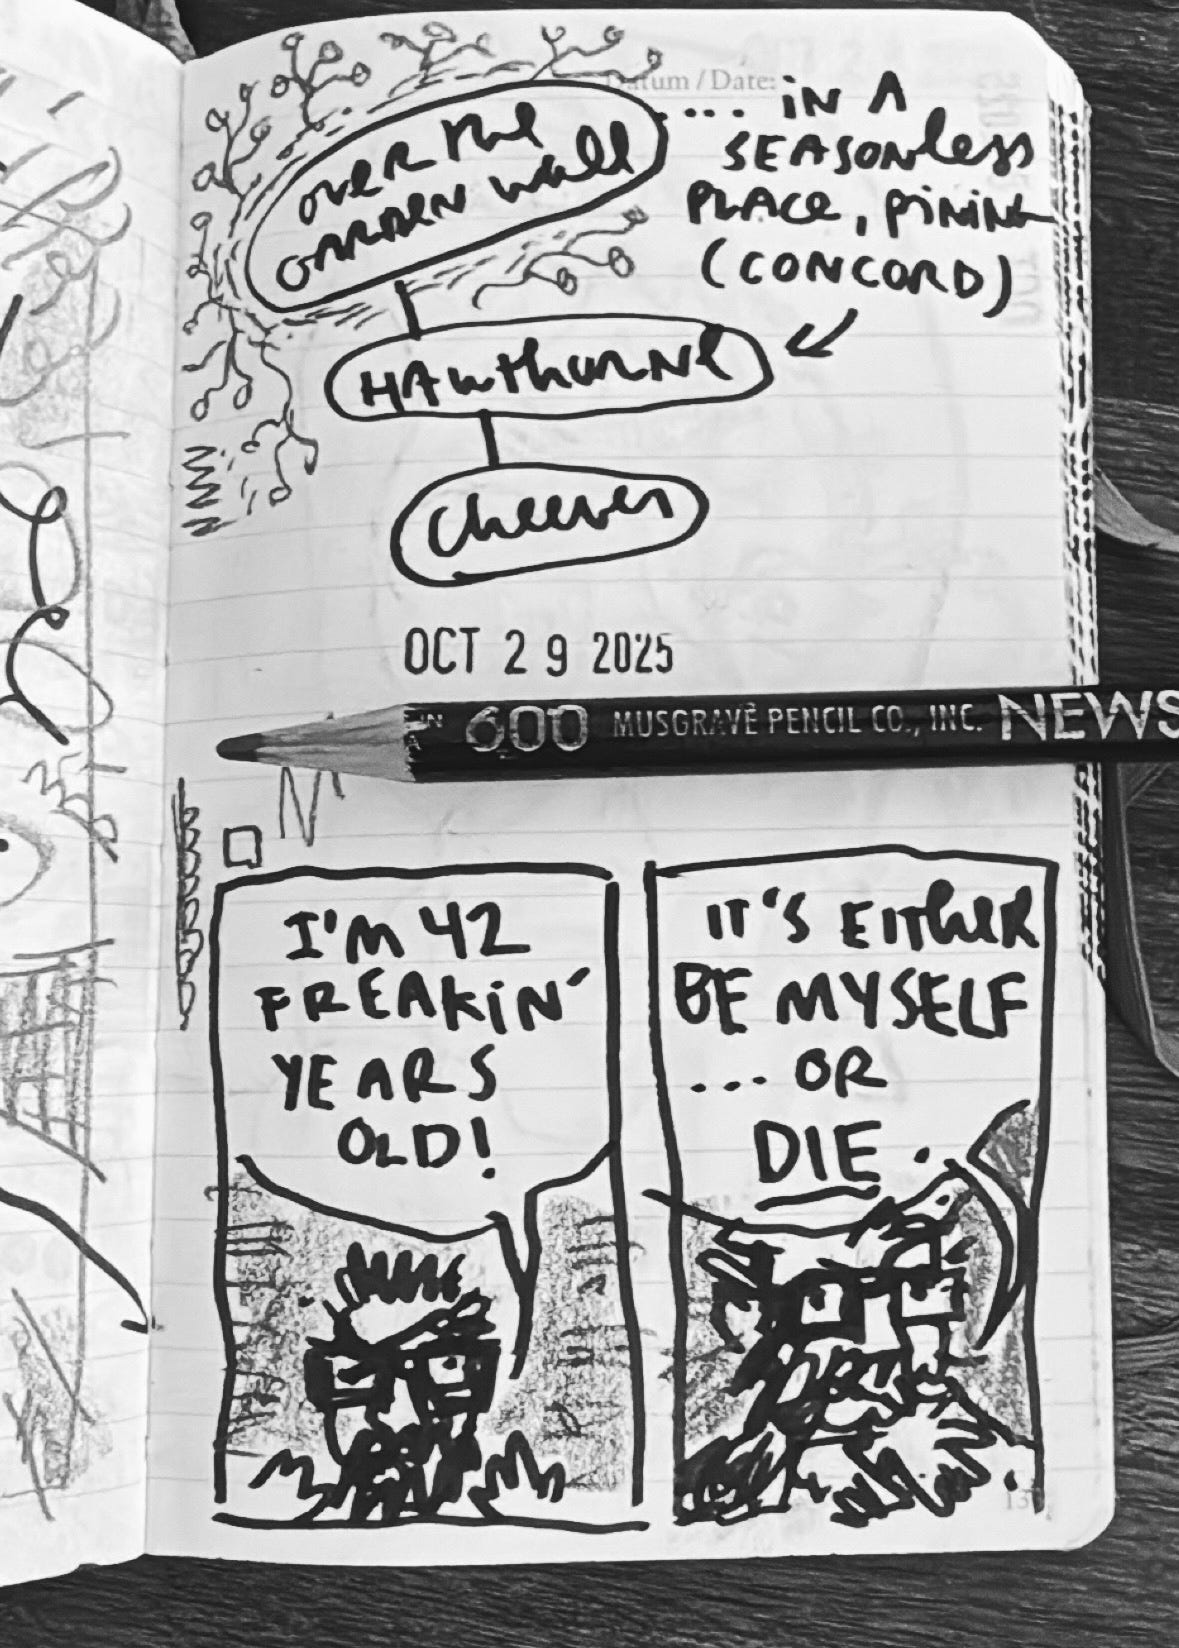 Datum / Date:
OVER THE
GARDEN WALL
.... IN A
SEASONLESS
PLACE, PINING
(CONCORD)
HAWTHORNE
Cheever
OCT 29 2025
600 MUSGRAVE PENCIL CO., INC. NEWS
I'M 42
FREAKIN'
YEARS
OLD!
IT'S EITHER
BE MYSELF
... OR
DIE.